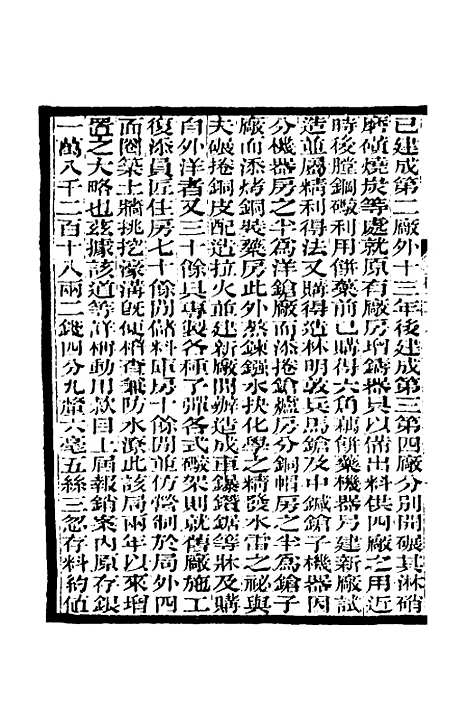 已建成第二廠外十三年後建成第三第四廠分別開碾其淋硝
磨磺燒炭等處就原有廠房增鑄器具以備出料供四廠之用近
時後膛鋼礮利用餅藥前已購得六角藕餅藥機器另建新廠試
造並屬精利得法又購得造林明敦兵馬鎗及中鍼鎗子機器因
分機器房之半為洋鎗廠而添捲鎗爐房分銅帽房之半為鎗子
廠而添烤銅裝藥房此外蒸鍊鏹水抉化學之精發水雷之祕與
夫碾捲銅皮配造拉火並建新廠開辦造成車鏍鑽鋸等牀及購
自外洋者又三十餘具專製各種子彈各式礮架則就舊廠施工
復添員匠住房七十餘間儲料庫房十餘間並仿營制於局外四
面圍築土牆挑挖濠溝既便稍查兼防水潦此該局兩年以來增
置之大略也茲據該道等詳稱動用款目上屆報銷案內原存銀
一萬八千二百十八兩二錢四分九釐六毫五絲三忽存料約值